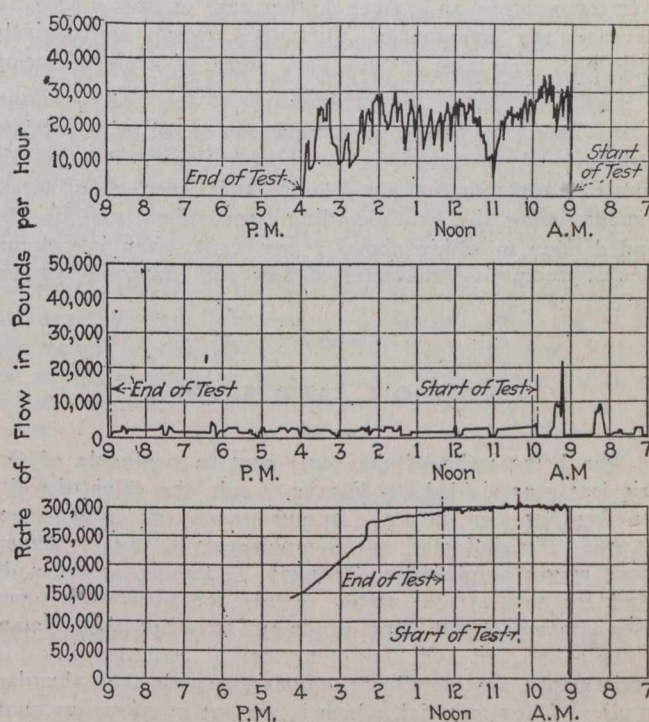 Rate of Flow in Pounds per Hour
50,000
40,000
30,000
20,000
10,000
0
End of Test
Start
of Test
9 8 7 6 5 4 3 2 1 12 11 10 9 8 7
P. M. Noon A.M.
50,000
40,000
30,000
20,000
10,000
0
End of Test
Start of Test
9 8 7 6 5 4 3 2 1 12 11 10 9 8 7
P. M. Noon A.M
300,000
250,000
200,000
150,000
100,000
50,000
0
End of Test
Start of Test
9 8 7 6 5 4 3 2 1 12 11 10 9 8 7
P.M. Noon A.M.